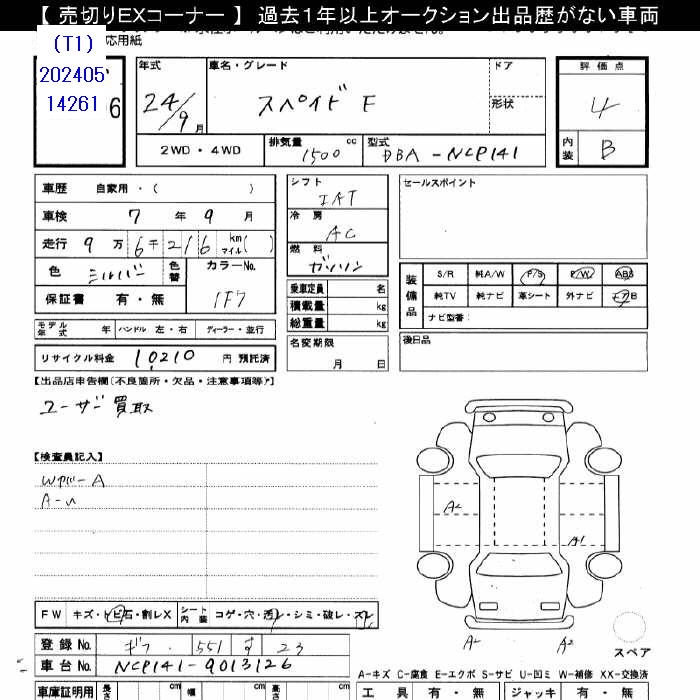 【 売切りEXコーナー 】 過去1年以上オークション出品歴がない車両
応用紙
(T1)
202405
14261
6
年式 車名・グレード ドア 評価点
24/9月 スペイド F 形状 4
2WD・4WD 排気量 1500 cc 型式 DBA-NCP141 内装 B
車歴 自家用・( ) シフト IAT セールスポイント
車検 7年9月 冷房 AC
走行 9万6千216 km マイル( ) 燃料 ガソリン
色 シルバー 色替 カラーNo. 1F7
保証書 有・無
乗車定員 名
積載量 kg
総重量 kg
装備品 S/R 純A/W P/S P/W ABS
純TV 純ナビ 革シート 外ナビ エアB
ナビ型番:
モデル年式 年 ハンドル 左・右 ディーラー・並行
名変期限 月 日
後日品
リサイクル料金 10210 円 預託済
【出品店申告欄(不良箇所・欠品・注意事項等)】
ユーザー買取
【検査員記入】
A
A2
A1
A2 A2
FW キズ・トビ石・割レX シート内装 コゲ・穴・汚レ・シミ・破レ・スレ
登録No. ギフ 551 す 23
車台No. NCP141-9013126
スペア
A-キズ C-腐食 E-エクボ S-サビ U-凹ミ W-補修 XX-交換済
車庫証明用 長さ cm 幅 cm 高さ cm
工具 有・無 ジャッキ 有・無